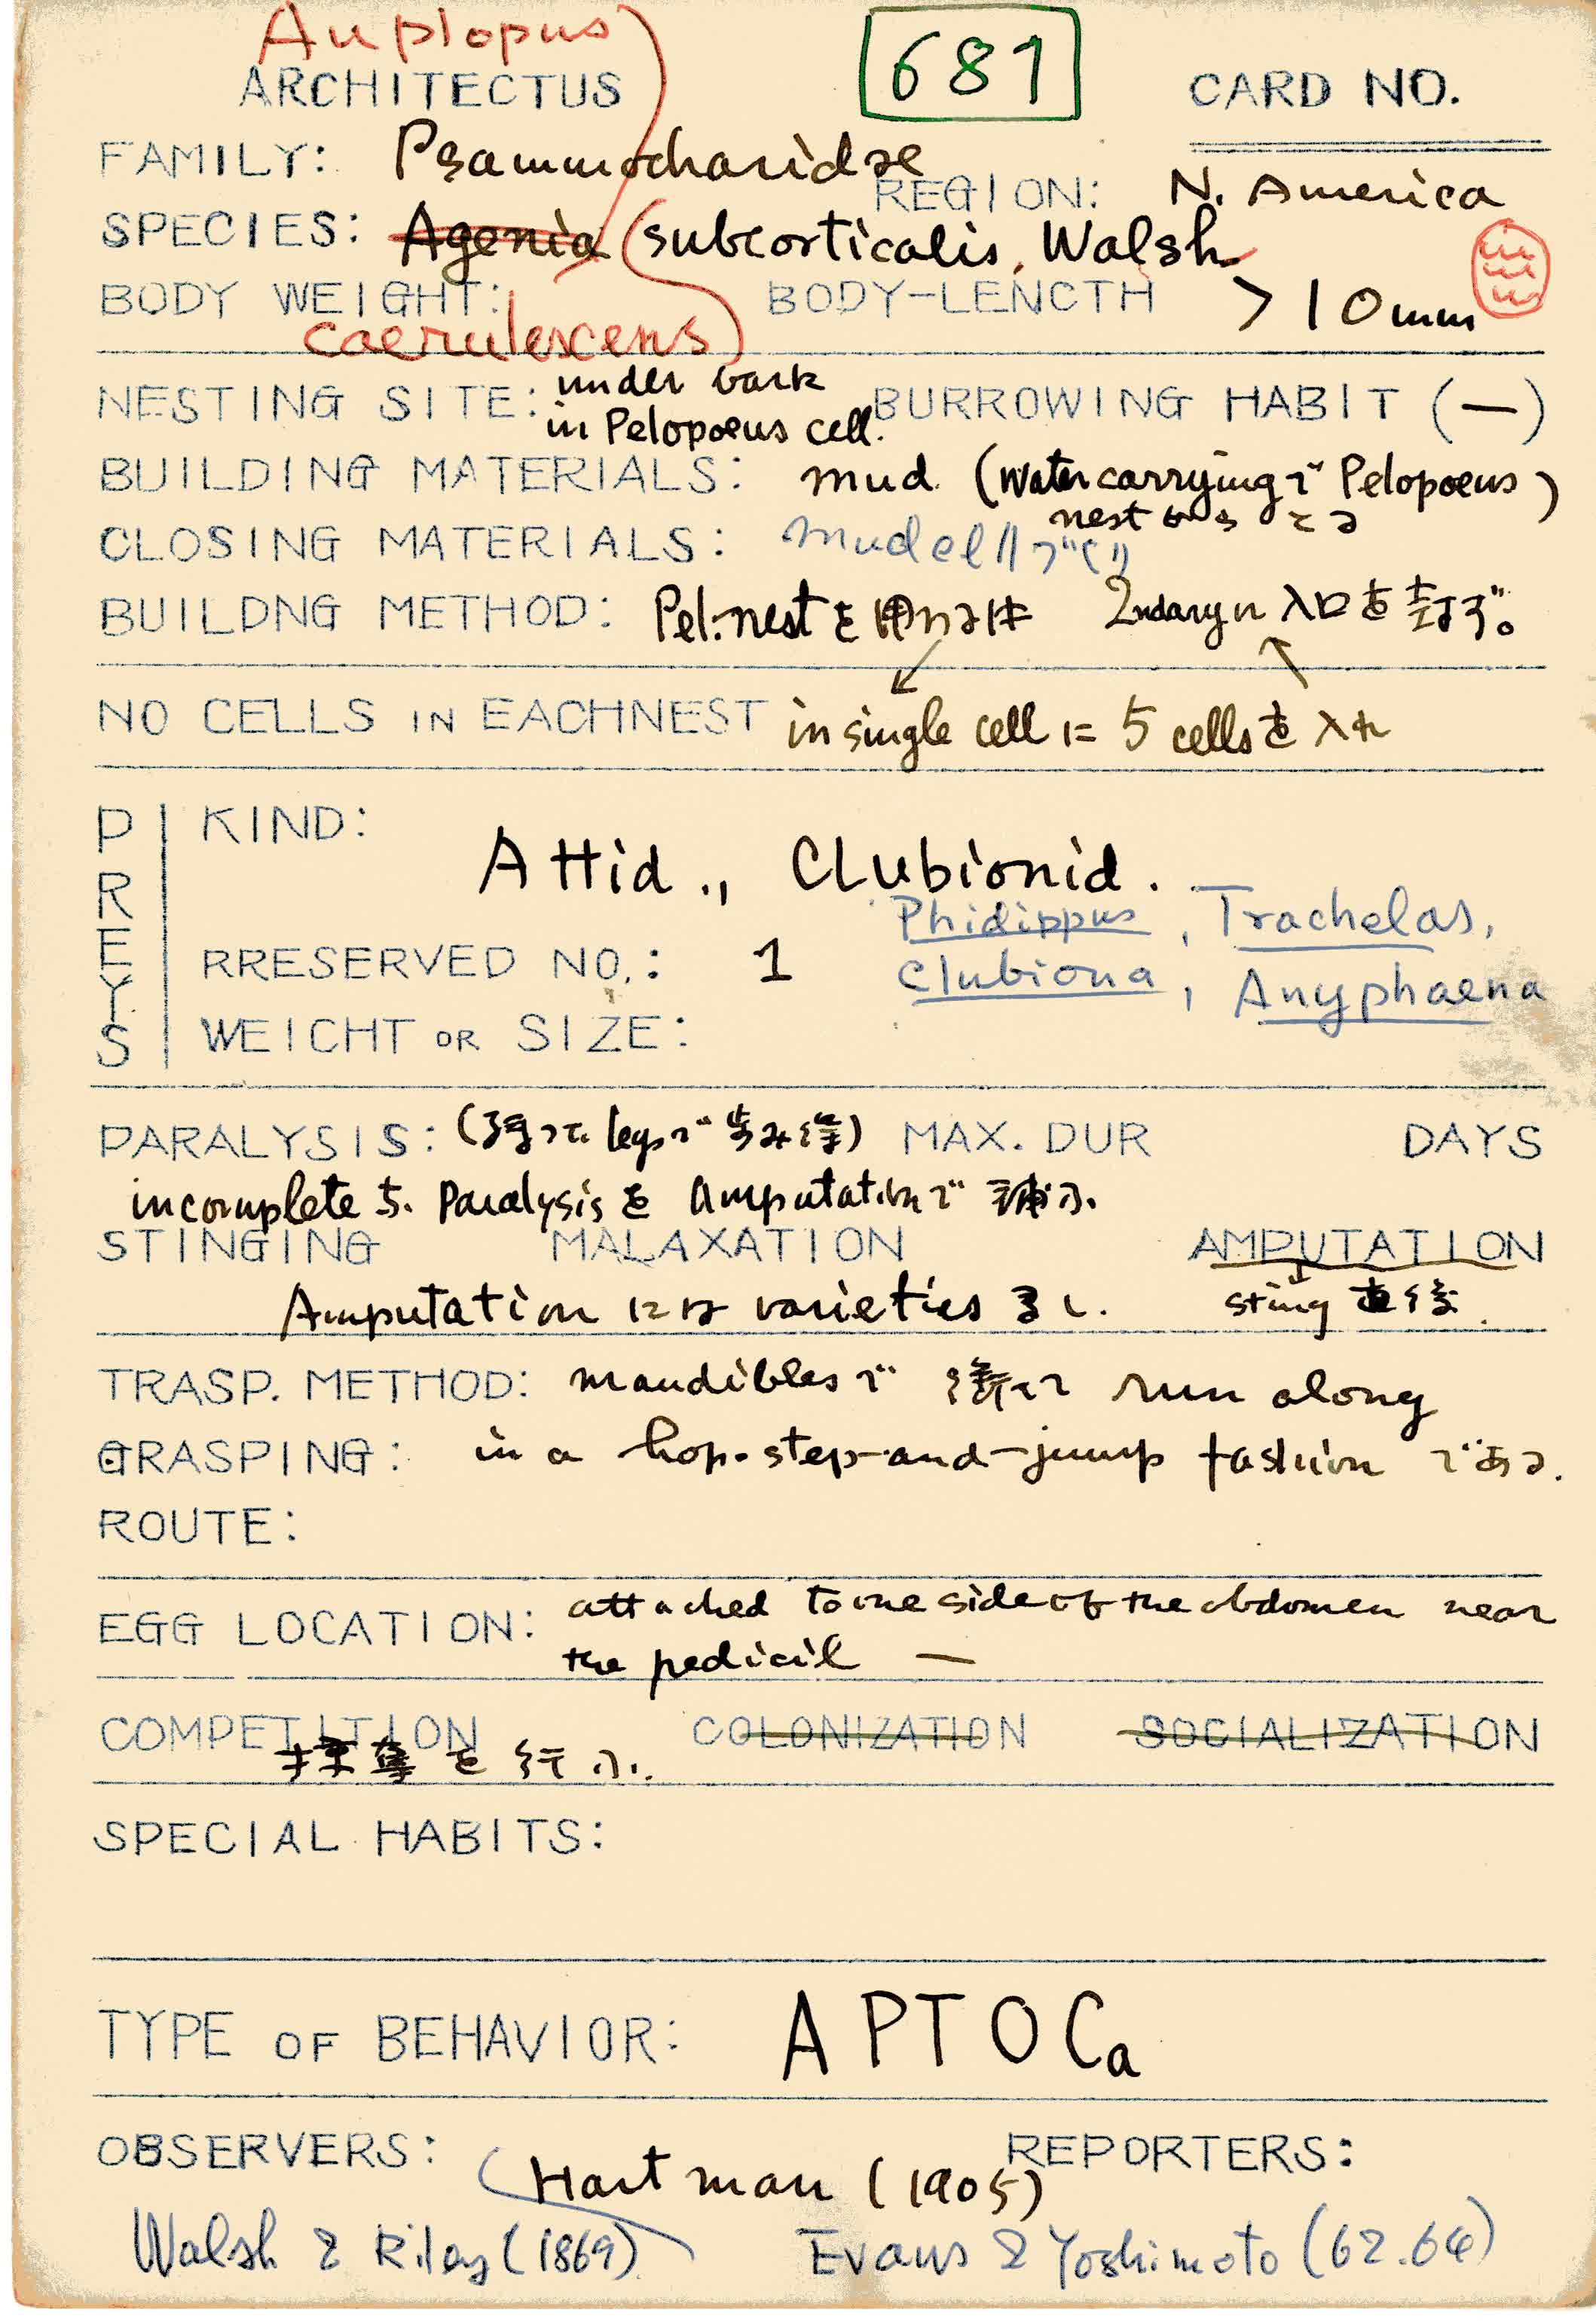 Auplopus
ARCHITECTUS
681
CARD NO.
FAMILY: Psammocharidae
REGION: N. America
SPECIES: Agenia (subcorticalis, Walsh
BODY WEIGHT:
BODY-LENGTH >10mm
caerulescens)
NESTING SITE: under bark
in Pelopoeus cell.
BURROWING HABIT (—)
BUILDING MATERIALS: mud. (water carryingで Pelopoeus)
nestからとる
CLOSING MATERIALS: mud
BUILDNG METHOD: Pel. nestを 2ndaryに入口を封ず。
NO CELLS IN EACHNEST in single cellに 5 cellsを入れ
PREYS
KIND:
Attid., Clubionid.
Phidippus, Trachelas,
RRESERVED NO.: 1
Clubiona, Anyphaena
WEICHT OR SIZE:
PARALYSIS: (残った legsで歩み得) MAX. DUR DAYS
incomplete paralysisを amputationで補ふ.
STINGING MALAXATION AMPUTATION
Amputationには varieties 多し.
sting 直後.
TRASP. METHOD: mandiblesで 銜へて run along
GRASPING: in a hop-step-and-jump fashion である.
ROUTE:
EGG LOCATION: attached to one side of the abdomen near
the pedicil —
COMPETITION COLONIZATION SOCIALIZATION
探奪を行ふ.
SPECIAL HABITS:
TYPE OF BEHAVIOR: APTOCa
OBSERVERS: Hartman (1905)
REPORTERS:
Walsh & Riley (1869)
Evans & Yoshimoto (62.64)